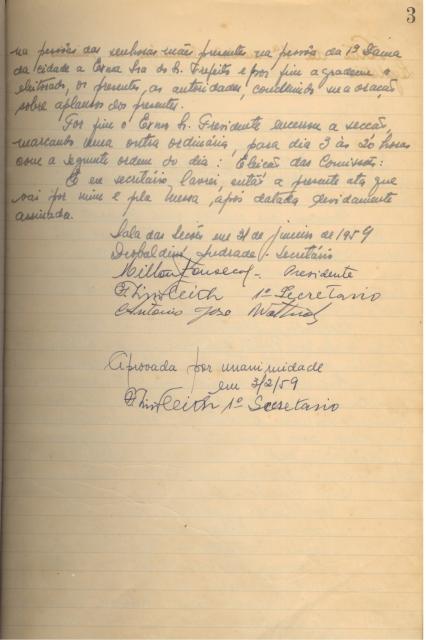 3
na pessôas das senhoras mães presentes na pessôa da 1ª Dama
da cidade a Exma Sra do Sr. Prefeito e por fim agradeceu o
eleitorado, os presentes, as autoridades, concluindo sua oração
sobre aplausos dos presentes.
Por fim o Exmo Sr. Presidente encerrou a secção,
marcando uma outra ordinária, para dia 3 às 20 horas
com a seguinte ordem do dia: Eleição das Comissões:
E eu secretário, lavrei, então a presente ata que
vai por mim e pela mesa, após datada devidamente
assinada.
Sala das Secões em 31 de janeiro de 1959
Andrade - Secretário
Milton Fonseca - Presidente
1º Secretario
Antonio José
Aprovada por unanimidade
em 3/2/59
1º Secretario